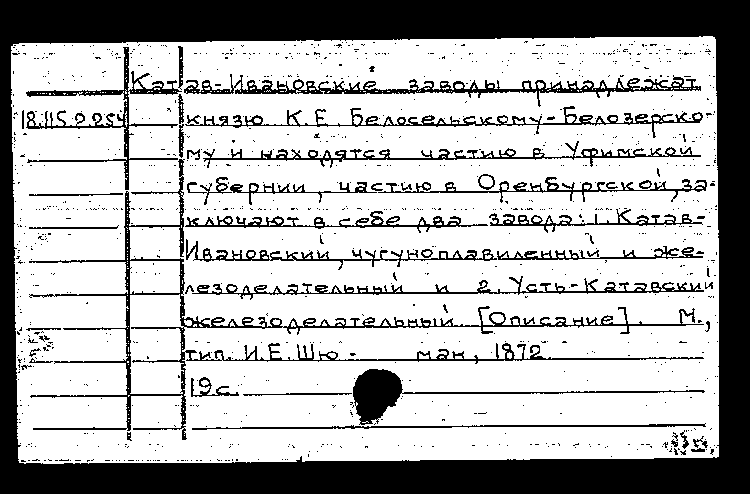 Катав-Ивановские заводы принадлежат
18.115.2.254 князю К.Е. Белосельскому-Белозерско-
му и находятся частию в Уфимской
губернии, частию в Оренбургской, за-
ключают в себе два завода: 1. Катав-
Ивановский, чугуноплавиленный и же-
лезоделательный и 2. Усть-Катавский
железоделательный. [Описание]. М.,
тип. И.Е. Шю - ман, 1872.
19 с.